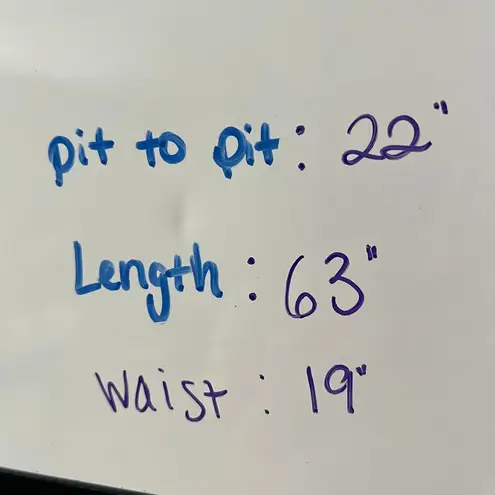 pit to pit: 22"
Length: 63"
Waist: 19"